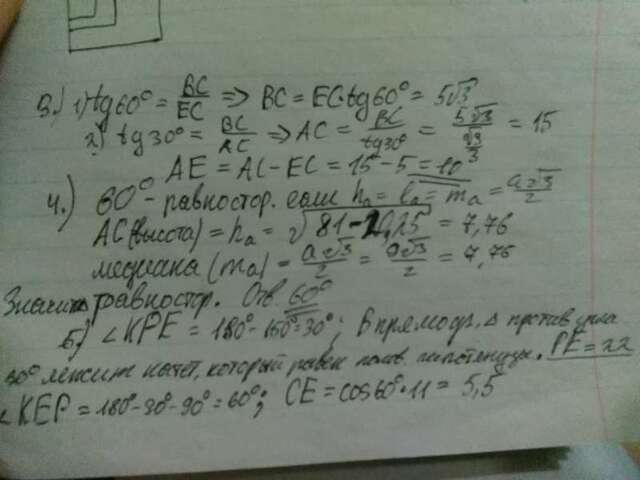 3.) 1) tg60° = BC/EC => BC = EC·tg60° = 5√3
2) tg30° = BC/AC => AC = BC/tg30° = 5√3/(√3/3) = 15
AE = AC - EC = 15 - 5 = 10
4.) 60° - равностор. если hₐ = lₐ = mₐ = a√3/2
AC(высота) = hₐ = √81-20,25 = 7,76
медиана (mₐ) = a√3/2 = 9√3/2 = 7,76
Значит равностор. Отв. 60°
5) ∠KPE = 180° - 150° = 30°; В прямоуг. Δ против угла
30° лежит катет, который равен полов. гипотенузы. PE = 22
∠KEP = 180° - 30° - 90° = 60°; CE = cos60°·11 = 5,5